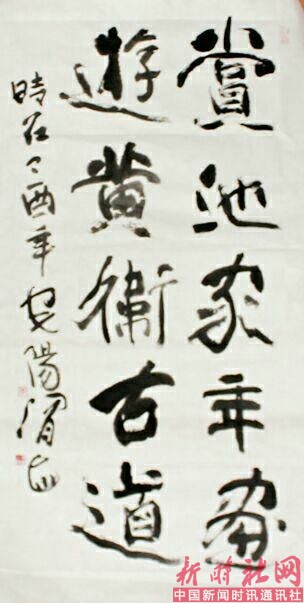 賞池家年畫
遊黄衛古道
時在丁酉年安陽
新时社网
中国新闻时讯通讯社